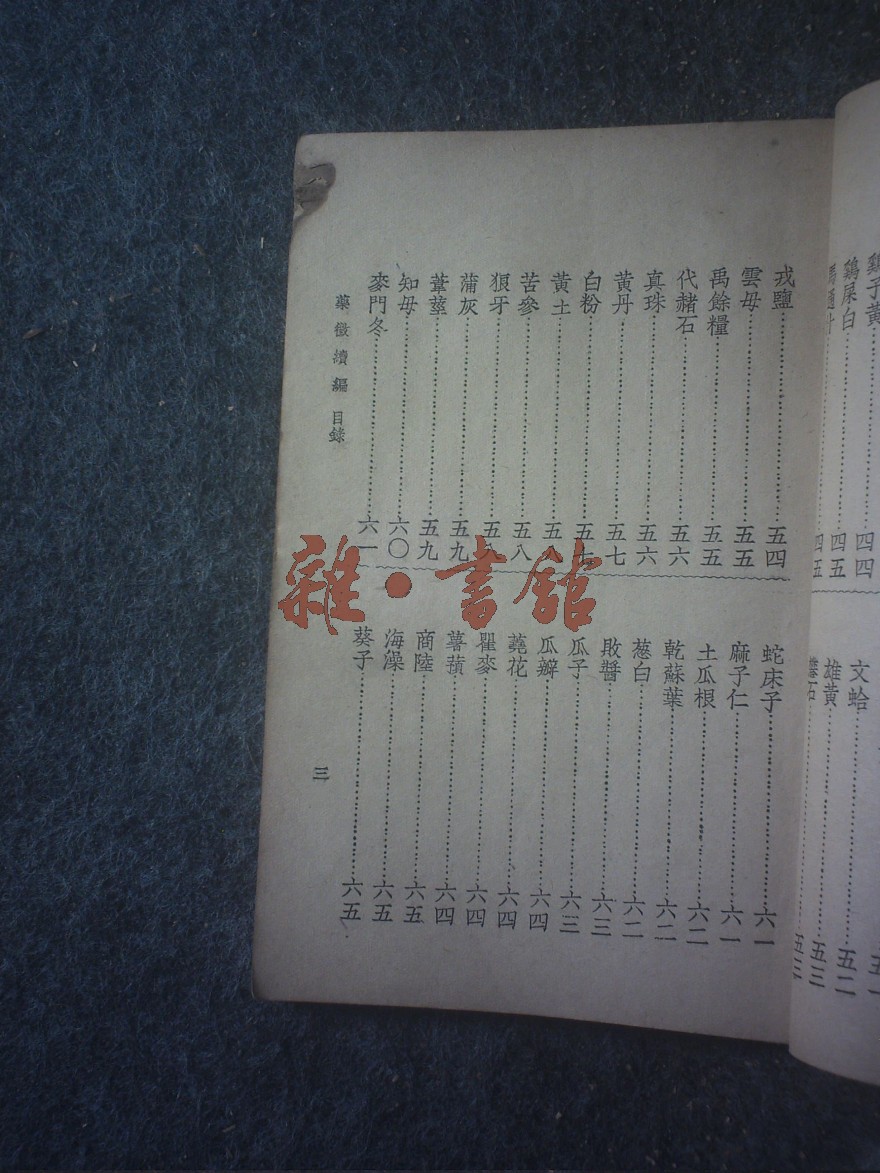 雞子黃 四四
雞屎白 四五
四五
文蛤 五二
雄黃 五三
五三
戎鹽 五四
雲母 五五
禹餘糧 五五
代赭石 五六
真珠 五六
黃丹 五七
白粉 五七
黃土 五八
苦參 五八
狼牙 五八
蒲灰 五九
葦莖 五九
知母 六〇
麥門冬 六一
蛇床子 六一
麻子仁 六一
土瓜根 六二
乾蘇葉 六二
葱白 六二
敗醬 六三
瓜子 六三
瓜瓣 六四
蕘花 六四
瞿麥 六四
薯蕷 六四
商陸 六五
海藻 六五
葵子 六五
藥徵續編 目錄
三
雜·書館